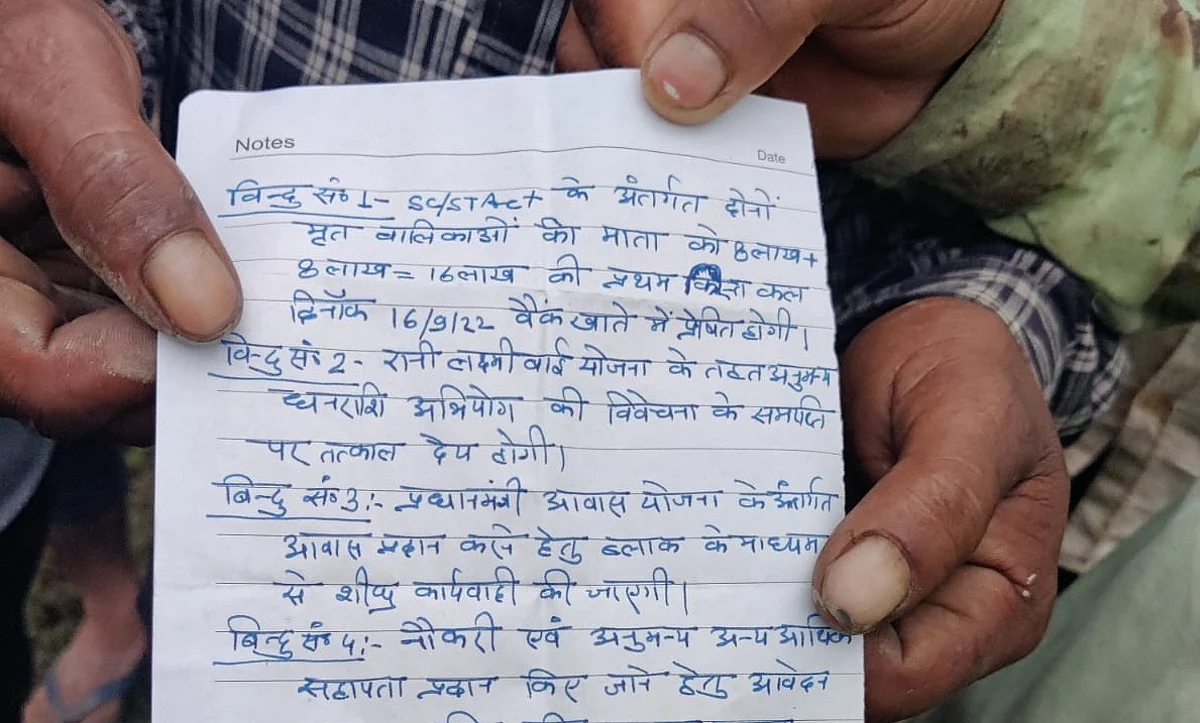 Notes
Date
बिन्दु सं० 1- SC/ST Act के अंतर्गत दोनों
मृत बालिकाओं की माता को 8 लाख +
8 लाख = 16 लाख की प्रथम किस्त कल
दिनाँक 16/9/22 बैंक खाते में प्रेषित होगी।
बिन्दु सं० 2- रानी लक्ष्मी बाई योजना के तहत अनुमन्य
धनराशि अभियोग की विवेचना के समाप्ति
पर तत्काल देय होगी।
बिन्दु सं० 3:- प्रधानमंत्री आवास योजना के अंतर्गत
आवास प्रदान करने हेतु ब्लाक के माध्यम
से शीघ्र कार्यवाही की जाएगी।
बिन्दु सं० 4:- नौकरी एवं अनुमन्य अन्य आर्थिक
सहायता प्रदान किए जाने हेतु आवेदन